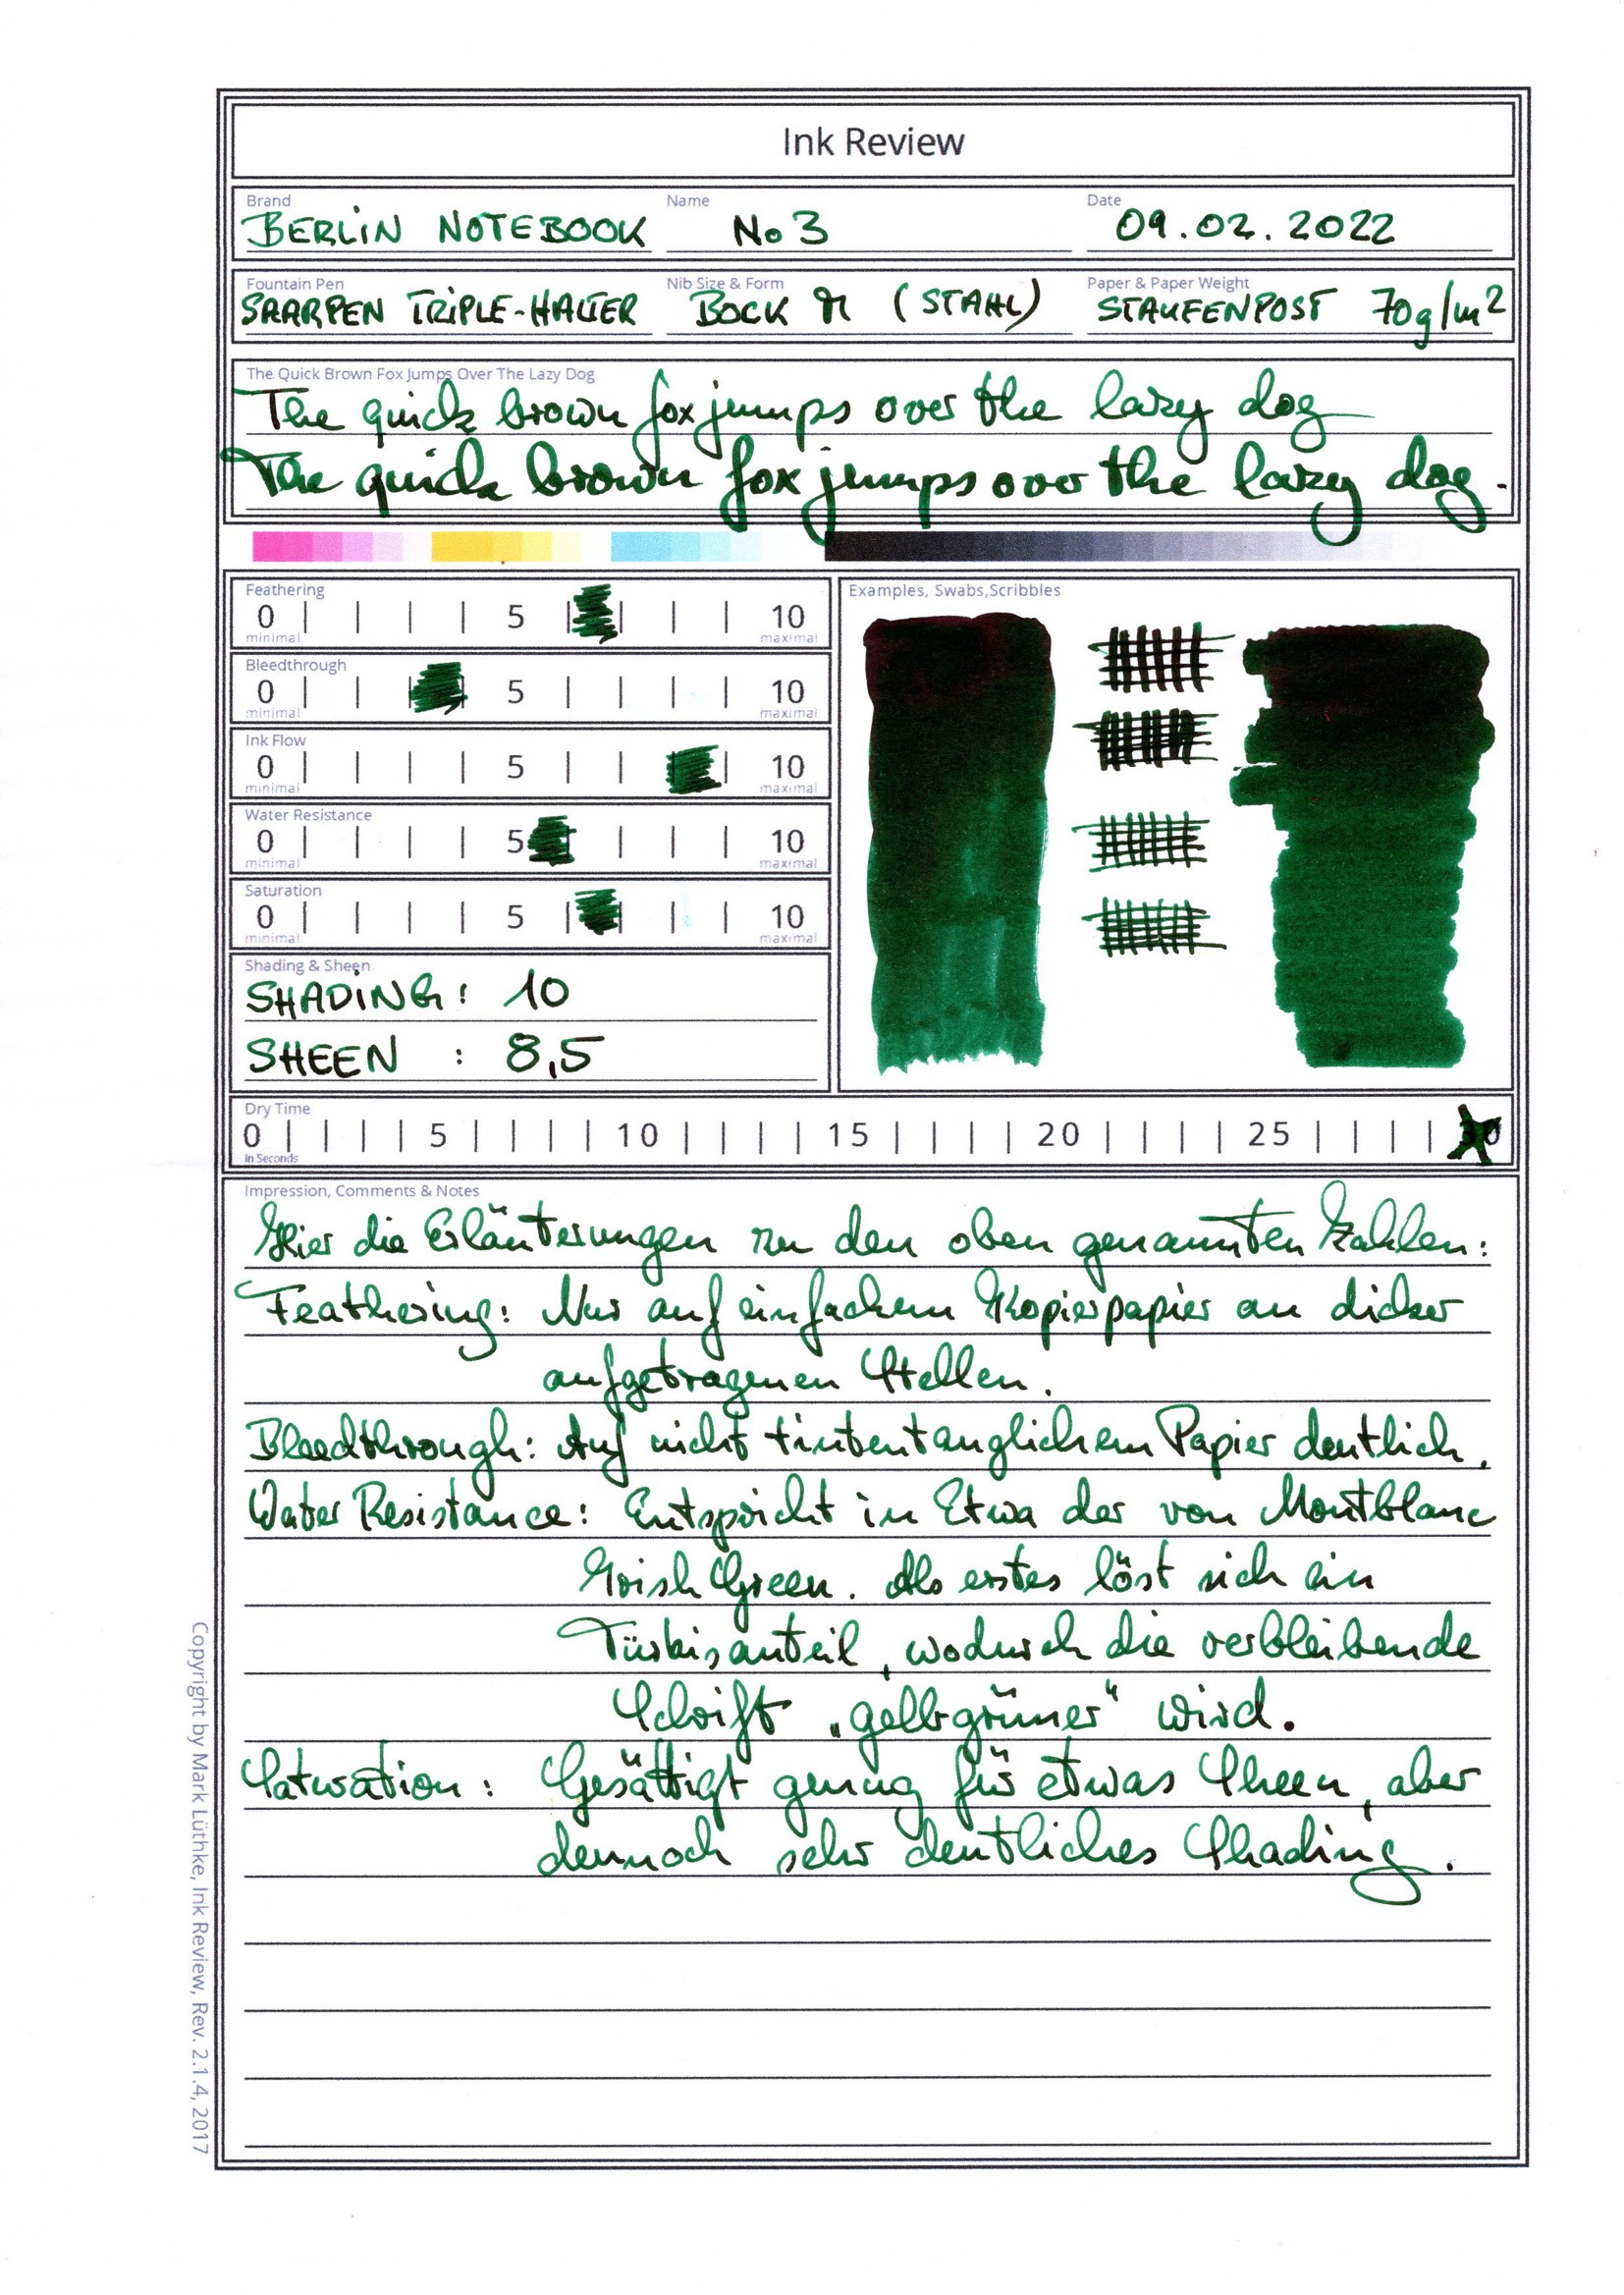 Ink Review
Brand Name Date
BERLIN NOTEBOOK No 3 09.02.2022
Fountain Pen Nib Size & Form Paper & Paper Weight
SAARPEN TRIPLE-HALTER BOCK M (STAHL) STAUFENPOST 70g/m²
The Quick Brown Fox Jumps Over The Lazy Dog
The quick brown fox jumps over the lazy dog
The quick brown fox jumps over the lazy dog.
Feathering
0 | | | | 5 | | | | 10
minimal maximal
Bleedthrough
0 | | | | 5 | | | | 10
minimal maximal
Ink Flow
0 | | | | 5 | | | | 10
minimal maximal
Water Resistance
0 | | | | 5 | | | | 10
minimal maximal
Saturation
0 | | | | 5 | | | | 10
minimal maximal
Shading & Sheen
SHADING: 10
SHEEN : 8,5
Examples, Swabs,Scribbles
Dry Time
0 | | | | 5 | | | | 10 | | | | 15 | | | | 20 | | | | 25 | | | | 30
In Seconds
Impression, Comments & Notes
Hier die Erläuterungen zu den oben genannten Zahlen:
Feathering: Nur auf einfachem Kopierpapier an dicker
aufgetragenen Stellen.
Bleedthrough: Auf nicht tintentauglichem Papier deutlich.
Water Resistance: Entspricht in Etwa der von Montblanc
Irish Green. Als erstes löst sich ein
Türkisanteil, wodurch die verbleibende
Schrift „gelbgrüner“ wird.
Saturation: Gesättigt genug für etwas Sheen, aber
dennoch sehr deutliches Shading.
Copyright by Mark Lüthke, Ink Review, Rev. 2.1.4, 2017